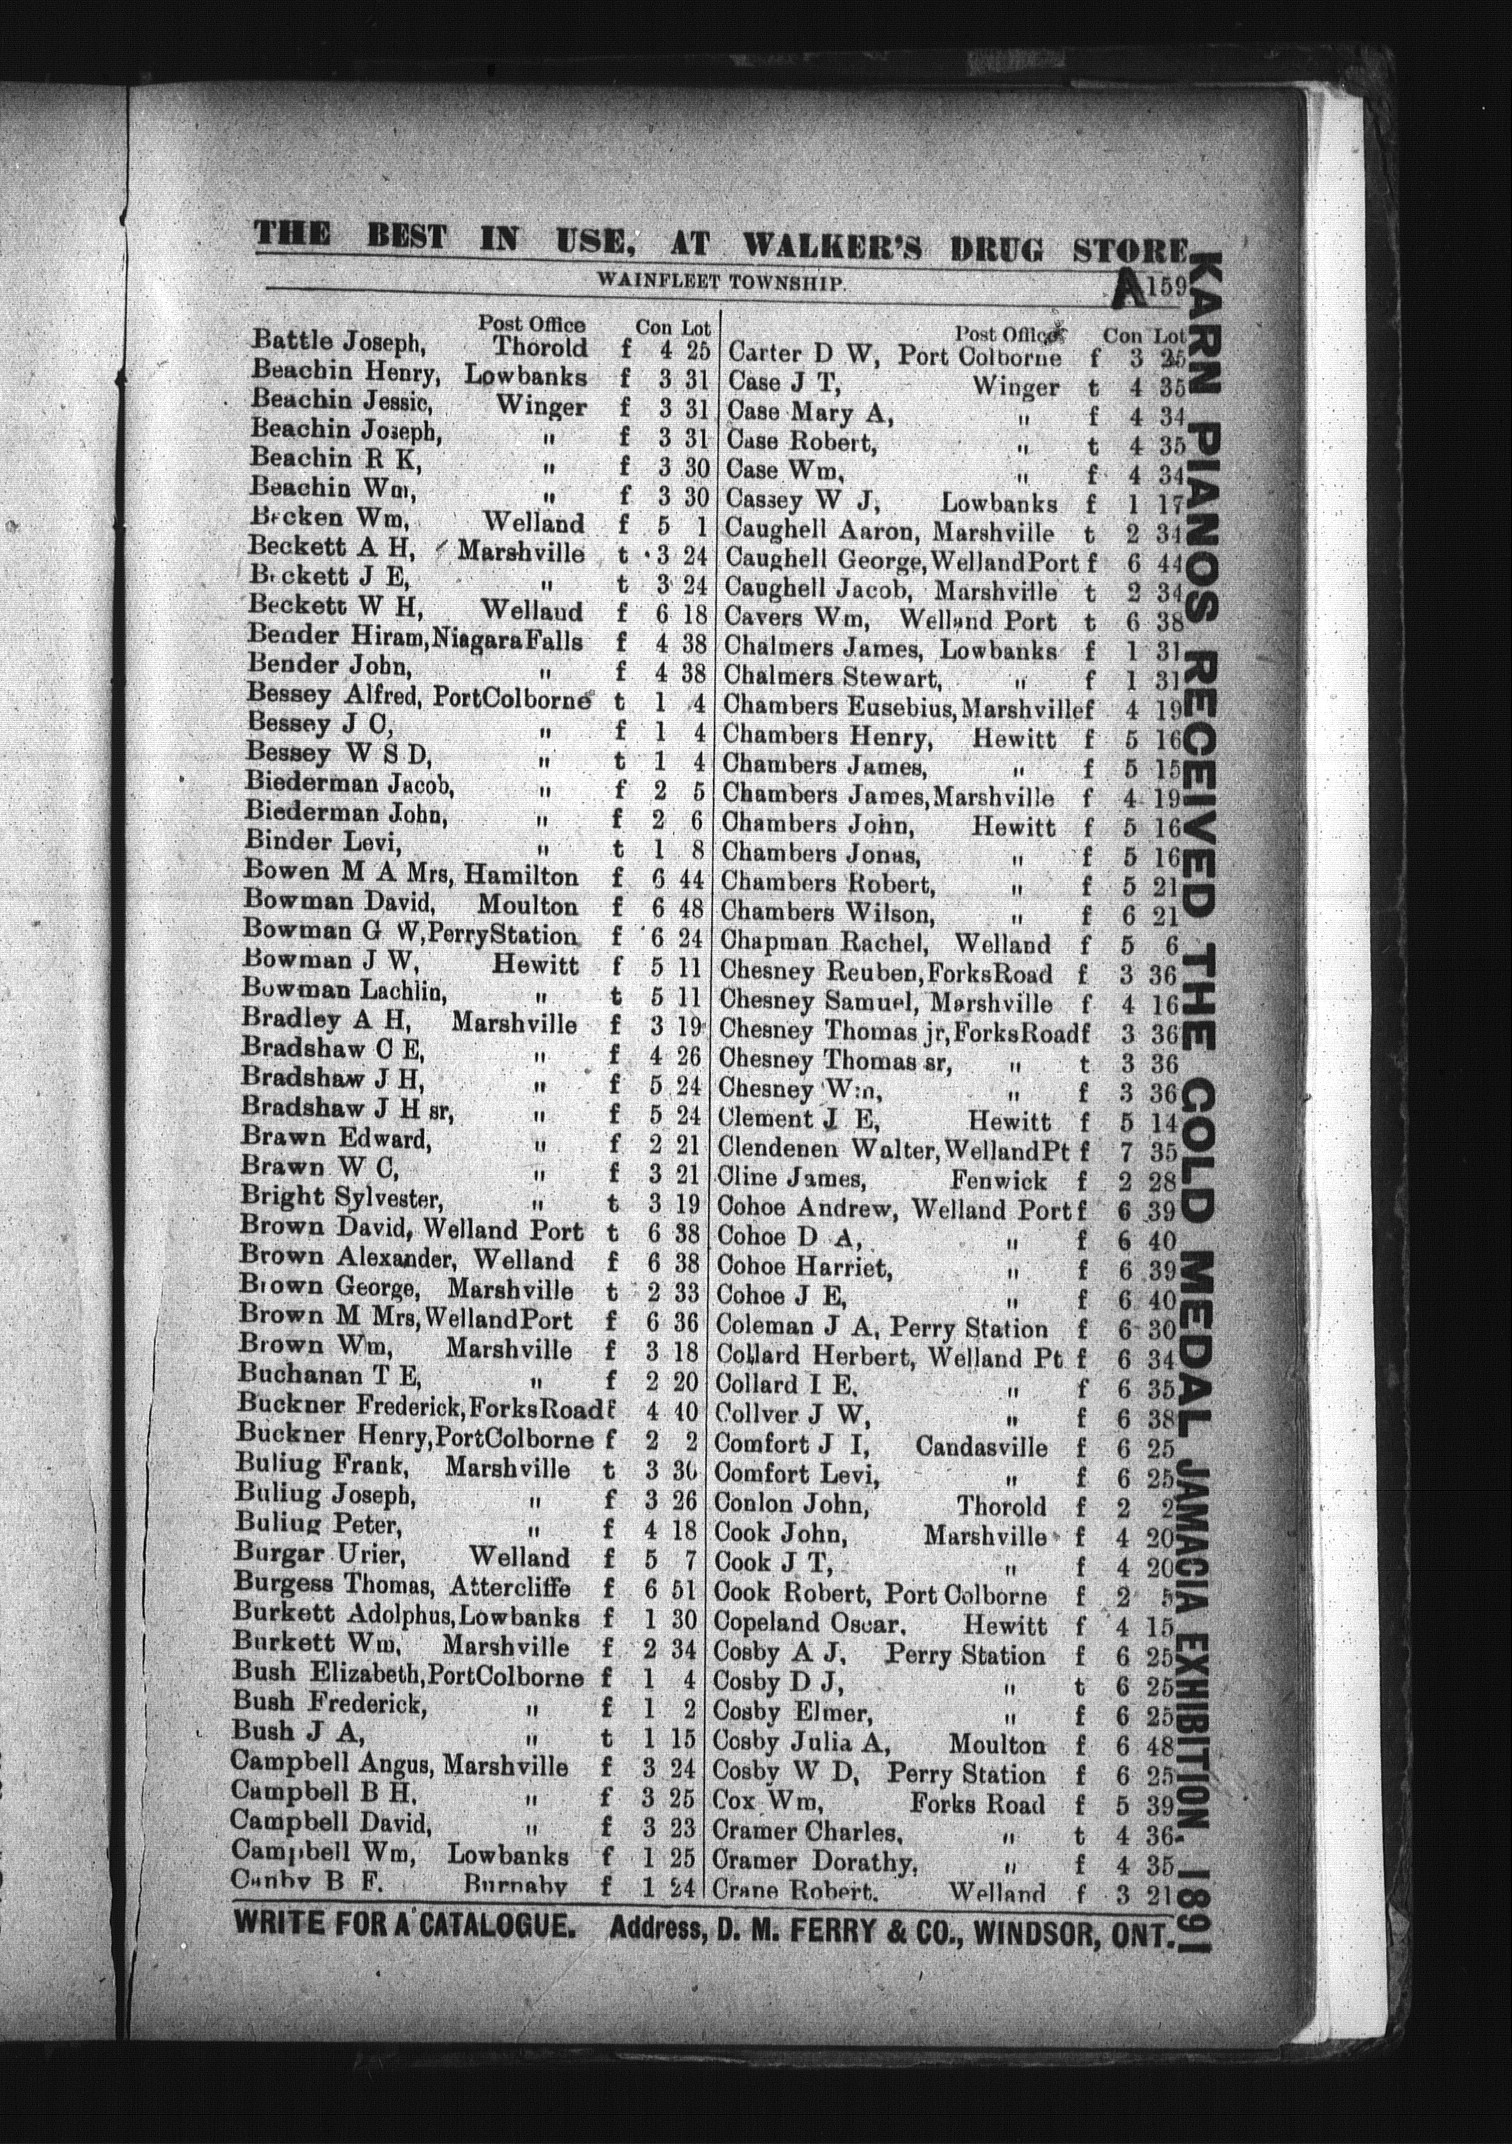 THE BEST IN USE, AT WALKER'S DRUG STORE
WAINFLEET TOWNSHIP. A 159
Post Office Con Lot
Battle Joseph, Thorold f 4 25
Beachin Henry, Lowbanks f 3 31
Beachin Jessie, Winger f 3 31
Beachin Joseph, " f 3 31
Beachin R K, " f 3 30
Beachin Wm, " f 3 30
Becken Wm, Welland f 5 1
Beckett A H, Marshville t 3 24
Beckett J E, " t 3 24
Beckett W H, Wellaud f 6 18
Bender Hiram, Niagara Falls f 4 38
Bender John, " f 4 38
Bessey Alfred, PortColborne t 1 4
Bessey J O, " f 1 4
Bessey W S D, " t 1 4
Biederman Jacob, " f 2 5
Biederman John, " f 2 6
Binder Levi, " t 1 8
Bowen M A Mrs, Hamilton f 6 44
Bowman David, Moulton f 6 48
Bowman G W, PerryStation f 6 24
Bowman J W, Hewitt f 5 11
Bowman Lachlin, " t 5 11
Bradley A H, Marshville f 3 19
Bradshaw C E, " f 4 26
Bradshaw J H, " f 5 24
Bradshaw J H sr, " f 5 24
Brawn Edward, " f 2 21
Brawn W C, " f 3 21
Bright Sylvester, " t 3 19
Brown David, Welland Port t 6 38
Brown Alexander, Welland f 6 38
Brown George, Marshville t 2 33
Brown M Mrs, WellandPort f 6 36
Brown Wm, Marshville f 3 18
Buchanan T E, " f 2 20
Buckner Frederick, ForksRoad f 4 40
Buckner Henry, PortColborne f 2 2
Buliug Frank, Marshville t 3 30
Buliug Joseph, " f 3 26
Buliug Peter, " f 4 18
Burgar Urier, Welland f 5 7
Burgess Thomas, Attercliffe f 6 51
Burkett Adolphus, Lowbanks f 1 30
Burkett Wm, Marshville f 2 34
Bush Elizabeth, PortColborne f 1 4
Bush Frederick, " f 1 2
Bush J A, " t 1 15
Campbell Angus, Marshville f 3 24
Campbell B H, " f 3 25
Campbell David, " f 3 23
Campbell Wm, Lowbanks f 1 25
Canby B F. Burnaby f 1 24
Post Office Con Lot
Carter D W, Port Colborne f 3 25
Case J T, Winger t 4 35
Case Mary A, " f 4 34
Case Robert, " t 4 35
Case Wm, " f 4 34
Cassey W J, Lowbanks f 1 17
Caughell Aaron, Marshville t 2 34
Caughell George, WellandPort f 6 44
Caughell Jacob, Marshville t 2 34
Cavers Wm, Welland Port t 6 38
Chalmers James, Lowbanks f 1 31
Chalmers Stewart, " f 1 31
Chambers Eusebius, Marshville f 4 19
Chambers Henry, Hewitt f 5 16
Chambers James, " f 5 15
Chambers James, Marshville f 4 19
Chambers John, Hewitt f 5 16
Chambers Jonas, " f 5 16
Chambers Robert, " f 5 21
Chambers Wilson, " f 6 21
Chapman Rachel, Welland f 5 6
Chesney Reuben, ForksRoad f 3 36
Chesney Samuel, Marshville f 4 16
Chesney Thomas jr, ForksRoad f 3 36
Chesney Thomas sr, " t 3 36
Chesney Wm, " f 3 36
Clement J E, Hewitt f 5 14
Clendenen Walter, WellandPt f 7 35
Cline James, Fenwick f 2 28
Cohoe Andrew, Welland Port f 6 39
Cohoe D A, " f 6 40
Cohoe Harriet, " f 6 39
Cohoe J E, " f 6 40
Coleman J A, Perry Station f 6 30
Collard Herbert, Welland Pt f 6 34
Collard I E. " f 6 35
Collver J W, " f 6 38
Comfort J I, Candasville f 6 25
Comfort Levi, " f 6 25
Conlon John, Thorold f 2 2
Cook John, Marshville f 4 20
Cook J T, " f 4 20
Cook Robert, Port Colborne f 2 5
Copeland Oscar. Hewitt f 4 15
Cosby A J, Perry Station f 6 25
Cosby D J, " t 6 25
Cosby Elmer, " f 6 25
Cosby Julia A, Moulton f 6 48
Cosby W D, Perry Station f 6 25
Cox Wm, Forks Road f 5 39
Cramer Charles, " t 4 36
Cramer Dorathy, " f 4 35
Crane Robert. Welland f 3 21
WRITE FOR A CATALOGUE. Address, D. M. FERRY & CO., WINDSOR, ONT.
KARN PIANOS RECEIVED THE GOLD MEDAL JAMACIA EXHIBITION 1891